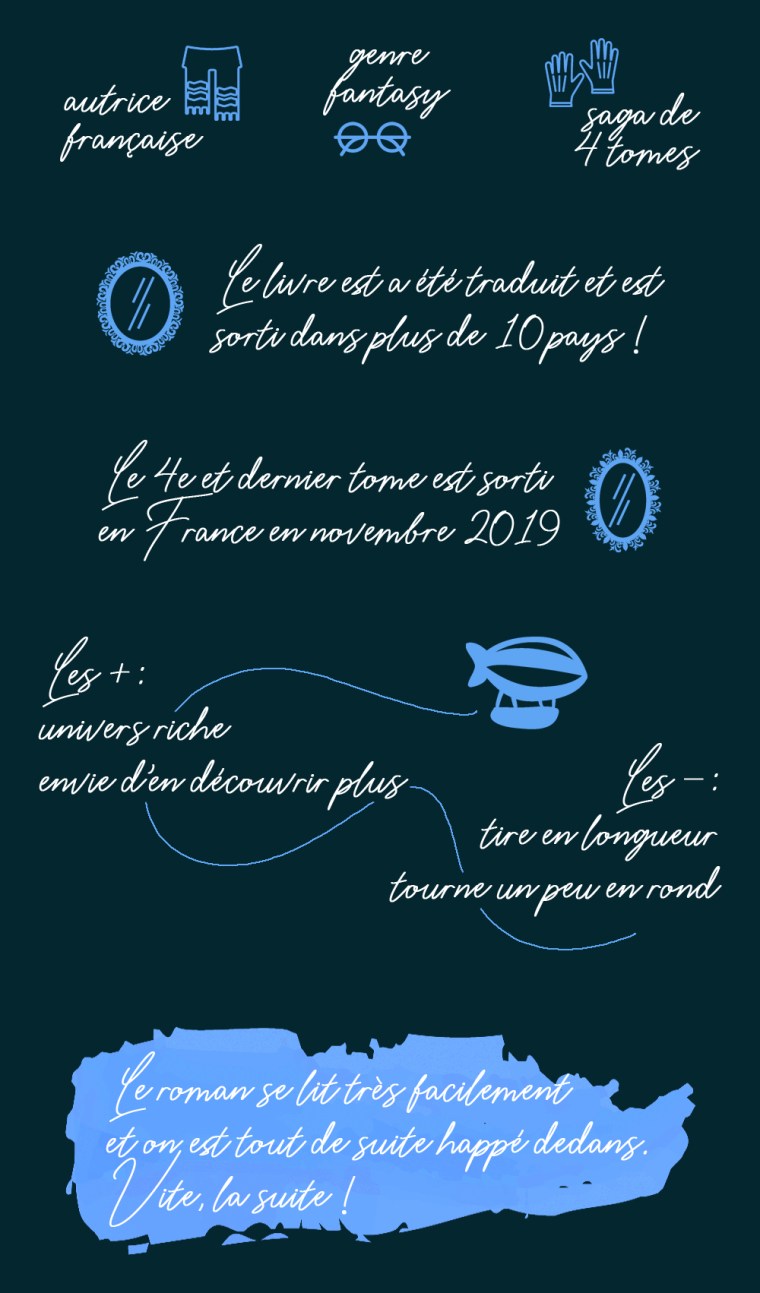 autrice
française
genre
fantasy
saga de
4 tomes
Le livre est a été traduit et est
sorti dans plus de 10 pays !
Le 4e et dernier tome est sorti
en France en novembre 2019
Les + :
univers riche
envie d'en découvrir plus
Les - :
tire en longueur
tourne un peu en rond
Le roman se lit très facilement
et on est tout de suite happé dedans.
Vite, la suite !